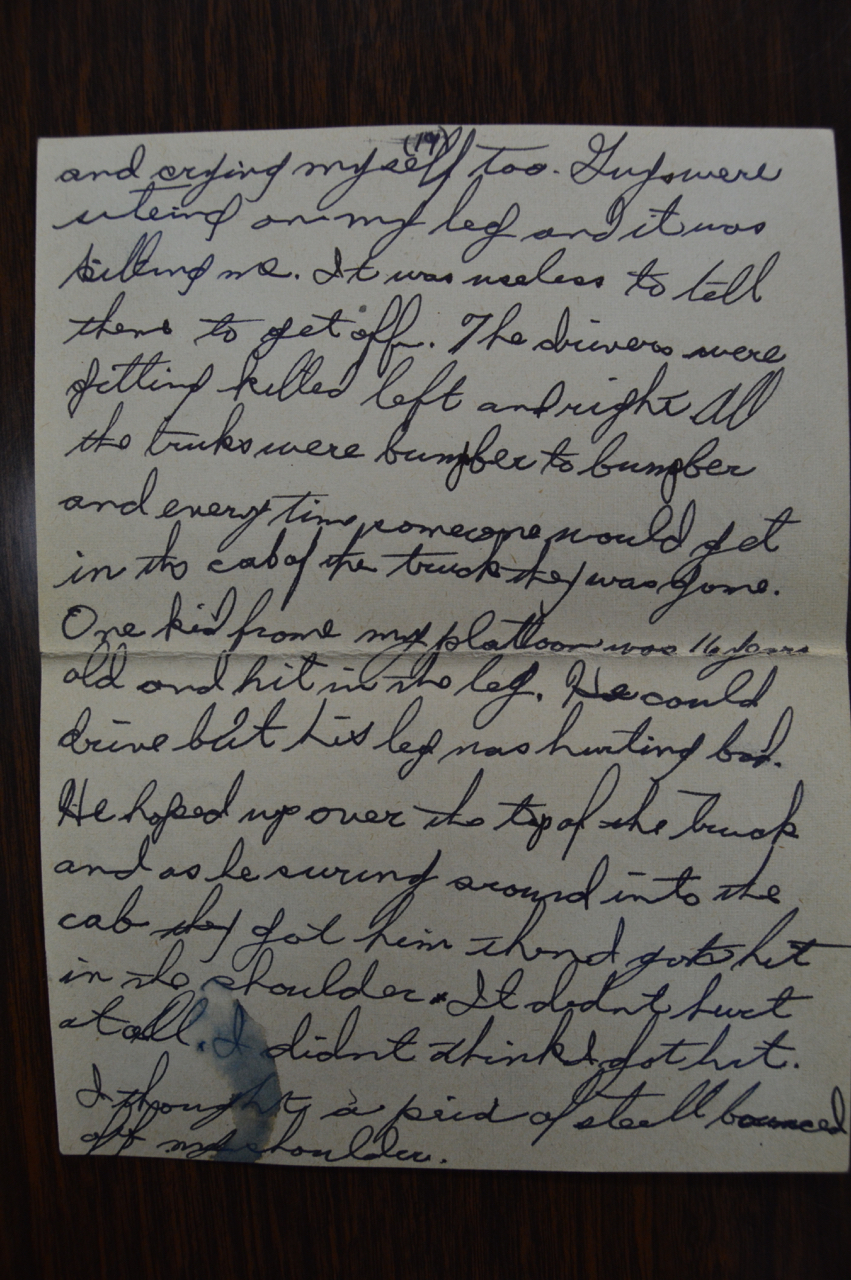 (19)
and crying myself too. Guys were
siteing on my leg and it was
killing me. It was useless to tell
them to get off. The drivers were
getting killed left and right All
the truks were bumpber to bumpber
and every time someone would get
in the cab of the truck they was gone.
One kid frome my platloon was 16 years
old and hit in the leg. He could
drive but his leg was hurting bad.
He hoped up over the top of the truck
and as he swring around into the
cab they got him then I got hit
in the shoulder. It didnt hurt
at all. I didnt think I got hit.
I thought a peid of steall bounced
off my shoulder.